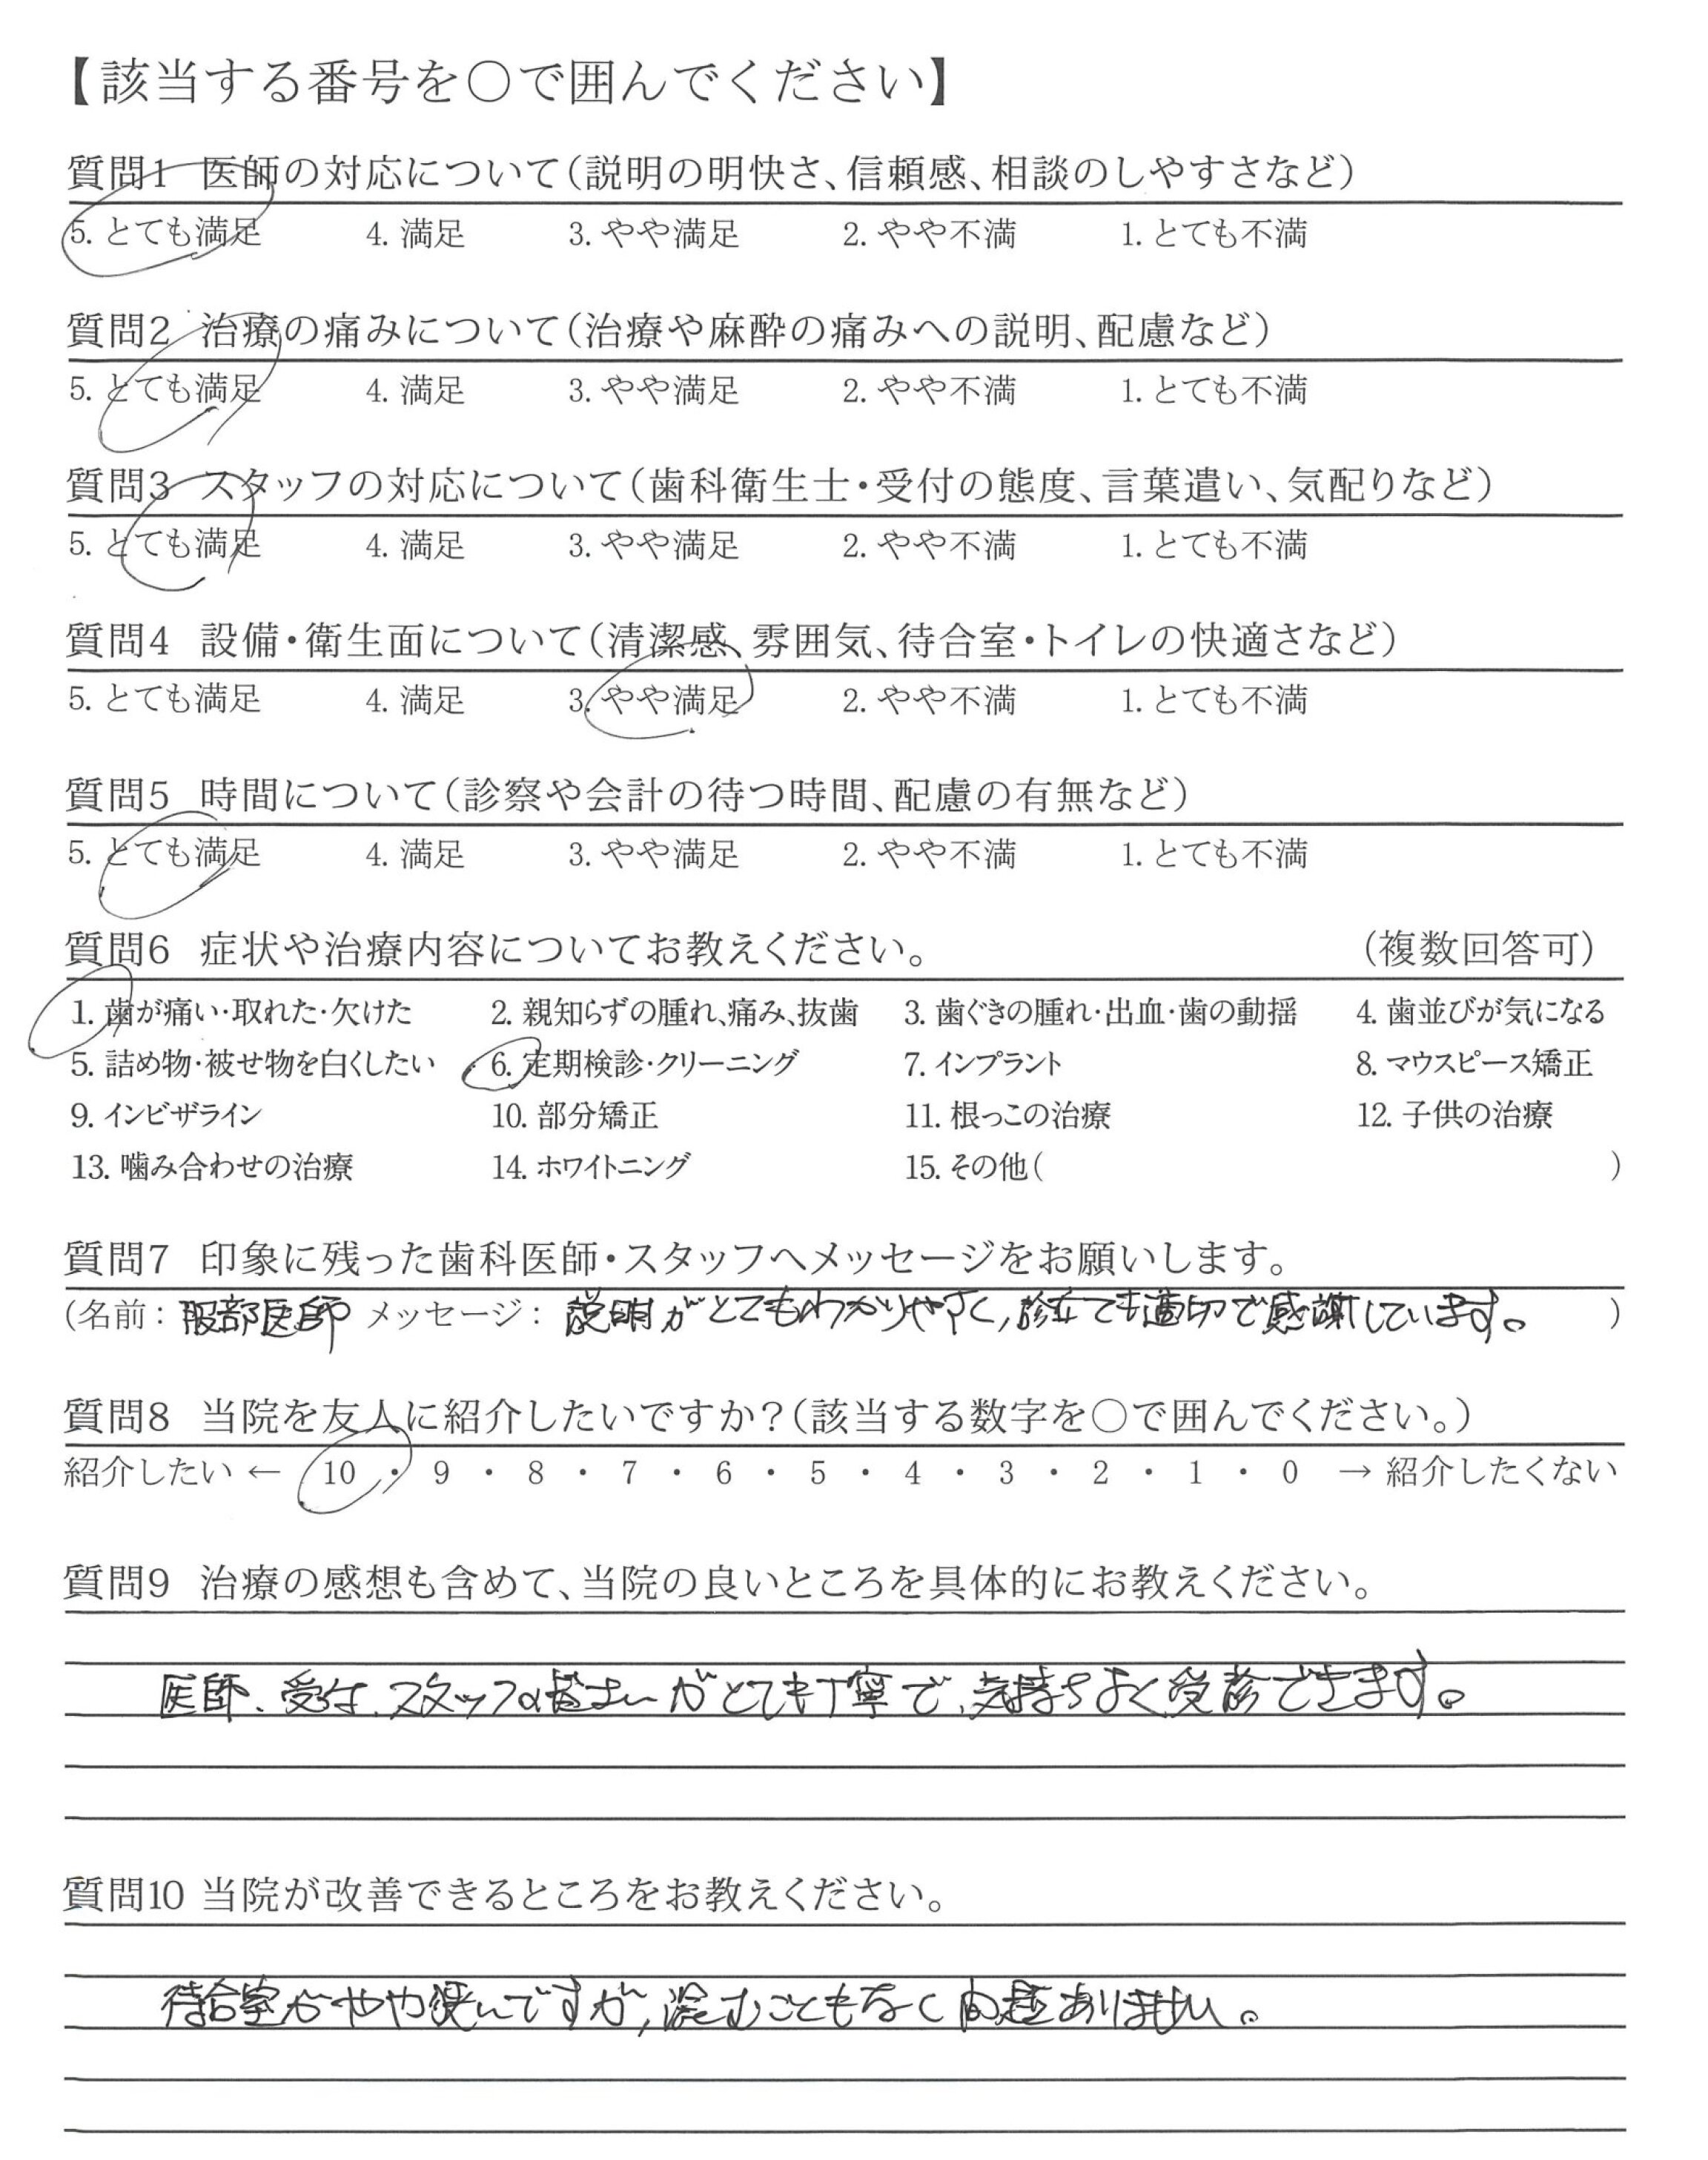 【該当する番号を○で囲んでください】
質問1 医師の対応について(説明の明快さ、信頼感、相談のしやすさなど)
5. とても満足 4. 満足 3. やや満足 2. やや不満 1. とても不満
質問2 治療の痛みについて(治療や麻酔の痛みへの説明、配慮など)
5. とても満足 4. 満足 3. やや満足 2. やや不満 1. とても不満
質問3 スタッフの対応について(歯科衛生士・受付の態度、言葉遣い、気配りなど)
5. とても満足 4. 満足 3. やや満足 2. やや不満 1. とても不満
質問4 設備・衛生面について(清潔感、雰囲気、待合室・トイレの快適さなど)
5. とても満足 4. 満足 3. やや満足 2. やや不満 1. とても不満
質問5 時間について(診察や会計の待つ時間、配慮の有無など)
5. とても満足 4. 満足 3. やや満足 2. やや不満 1. とても不満
質問6 症状や治療内容についてお教えください。 (複数回答可)
1. 歯が痛い・取れた・欠けた 2. 親知らずの腫れ、痛み、抜歯 3. 歯ぐきの腫れ・出血・歯の動揺 4. 歯並びが気になる
5. 詰め物・被せ物を白くしたい 6. 定期検診・クリーニング 7. インプラント 8. マウスピース矯正
9. インビザライン 10. 部分矯正 11. 根っこの治療 12. 子供の治療
13. 噛み合わせの治療 14. ホワイトニング 15. その他( )
質問7 印象に残った歯科医師・スタッフへメッセージをお願いします。
(名前: 服部医師 メッセージ: 説明がとてもわかりやすく,診立ても適切で感謝しています。 )
質問8 当院を友人に紹介したいですか?(該当する数字を○で囲んでください。)
紹介したい ← 10 ・ 9 ・ 8 ・ 7 ・ 6 ・ 5 ・ 4 ・ 3 ・ 2 ・ 1 ・ 0 → 紹介したくない
質問9 治療の感想も含めて、当院の良いところを具体的にお教えください。
医師、受付、スタッフの皆さんがとても丁寧で、気持ちよく受診できます。
質問10 当院が改善できるところをお教えください。
待合室がやや狭いですが,混むこともなく問題ありません。